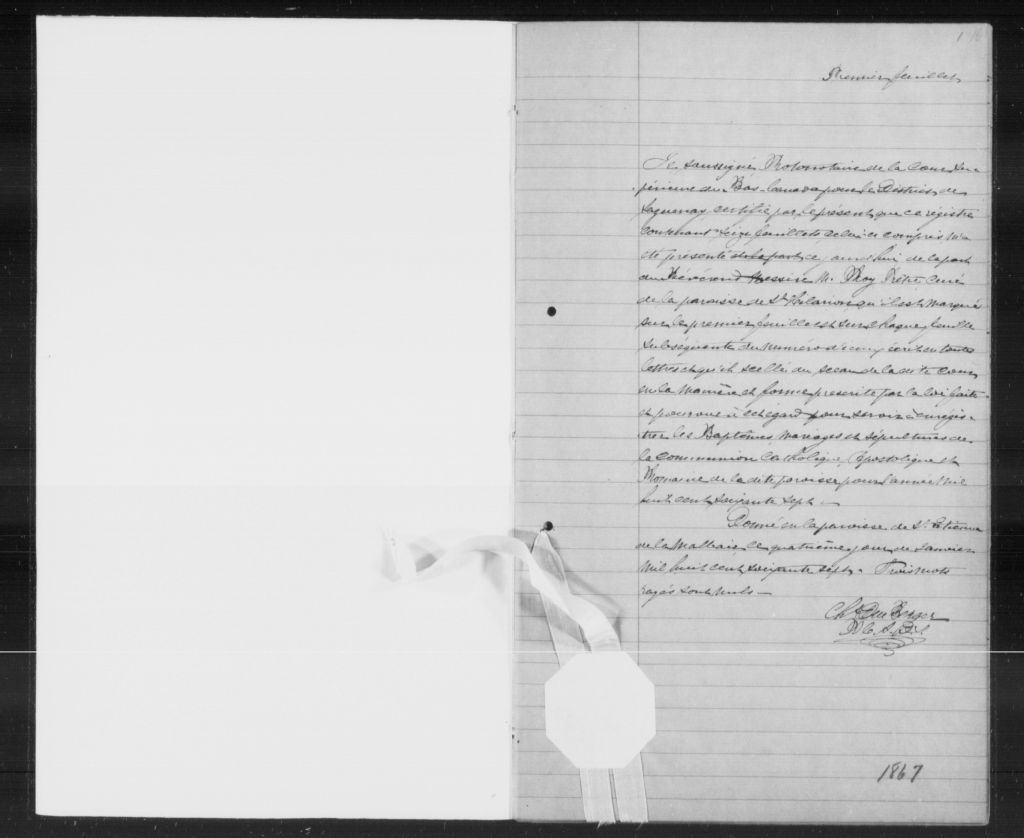 Premier feuillet
Je soussigné Protonotaire de la Cour Su-
périeure du Bas-Canada pour le District de
Saguenay certifie par le présent que ce régistre
contenant seize feuillets celui-ci compris m'a
été présenté de la part ce jourd'hui de la part
du Révérend Messire M. Roy Prêtre Curé
de la paroisse de St Hilarion, qu'il est marqué
sur le premier feuillet et sur chaque feuille
subséquente du numéro d'iceux écrit en toutes
lettres et qu'il scellé du sceau de la dite Cour
en la manière et forme prescrite par la loi faite
et pourvue à cet égard pour servir à enrégis-
trer les Baptêmes, Mariages et Sépultures de
la Communion Catholique, Apostolique et
Romaine de la dite paroisse pour l'année mil
huit cent soixante sept.
Donné en la paroisse de St Etienne
de la Malbaie, ce quatrième jour de Janvier
mil huit cent soixante sept. Trois mots
rayés sont nuls.
Chs Du Berger
P. C. S. D. S.
1867